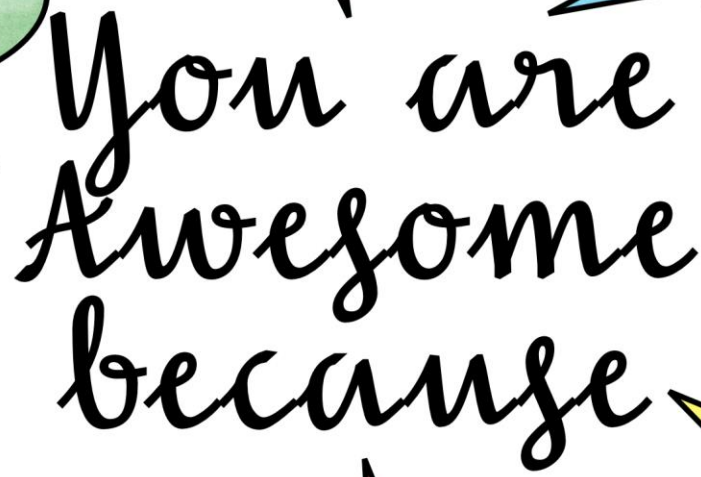 You are
Awesome
because